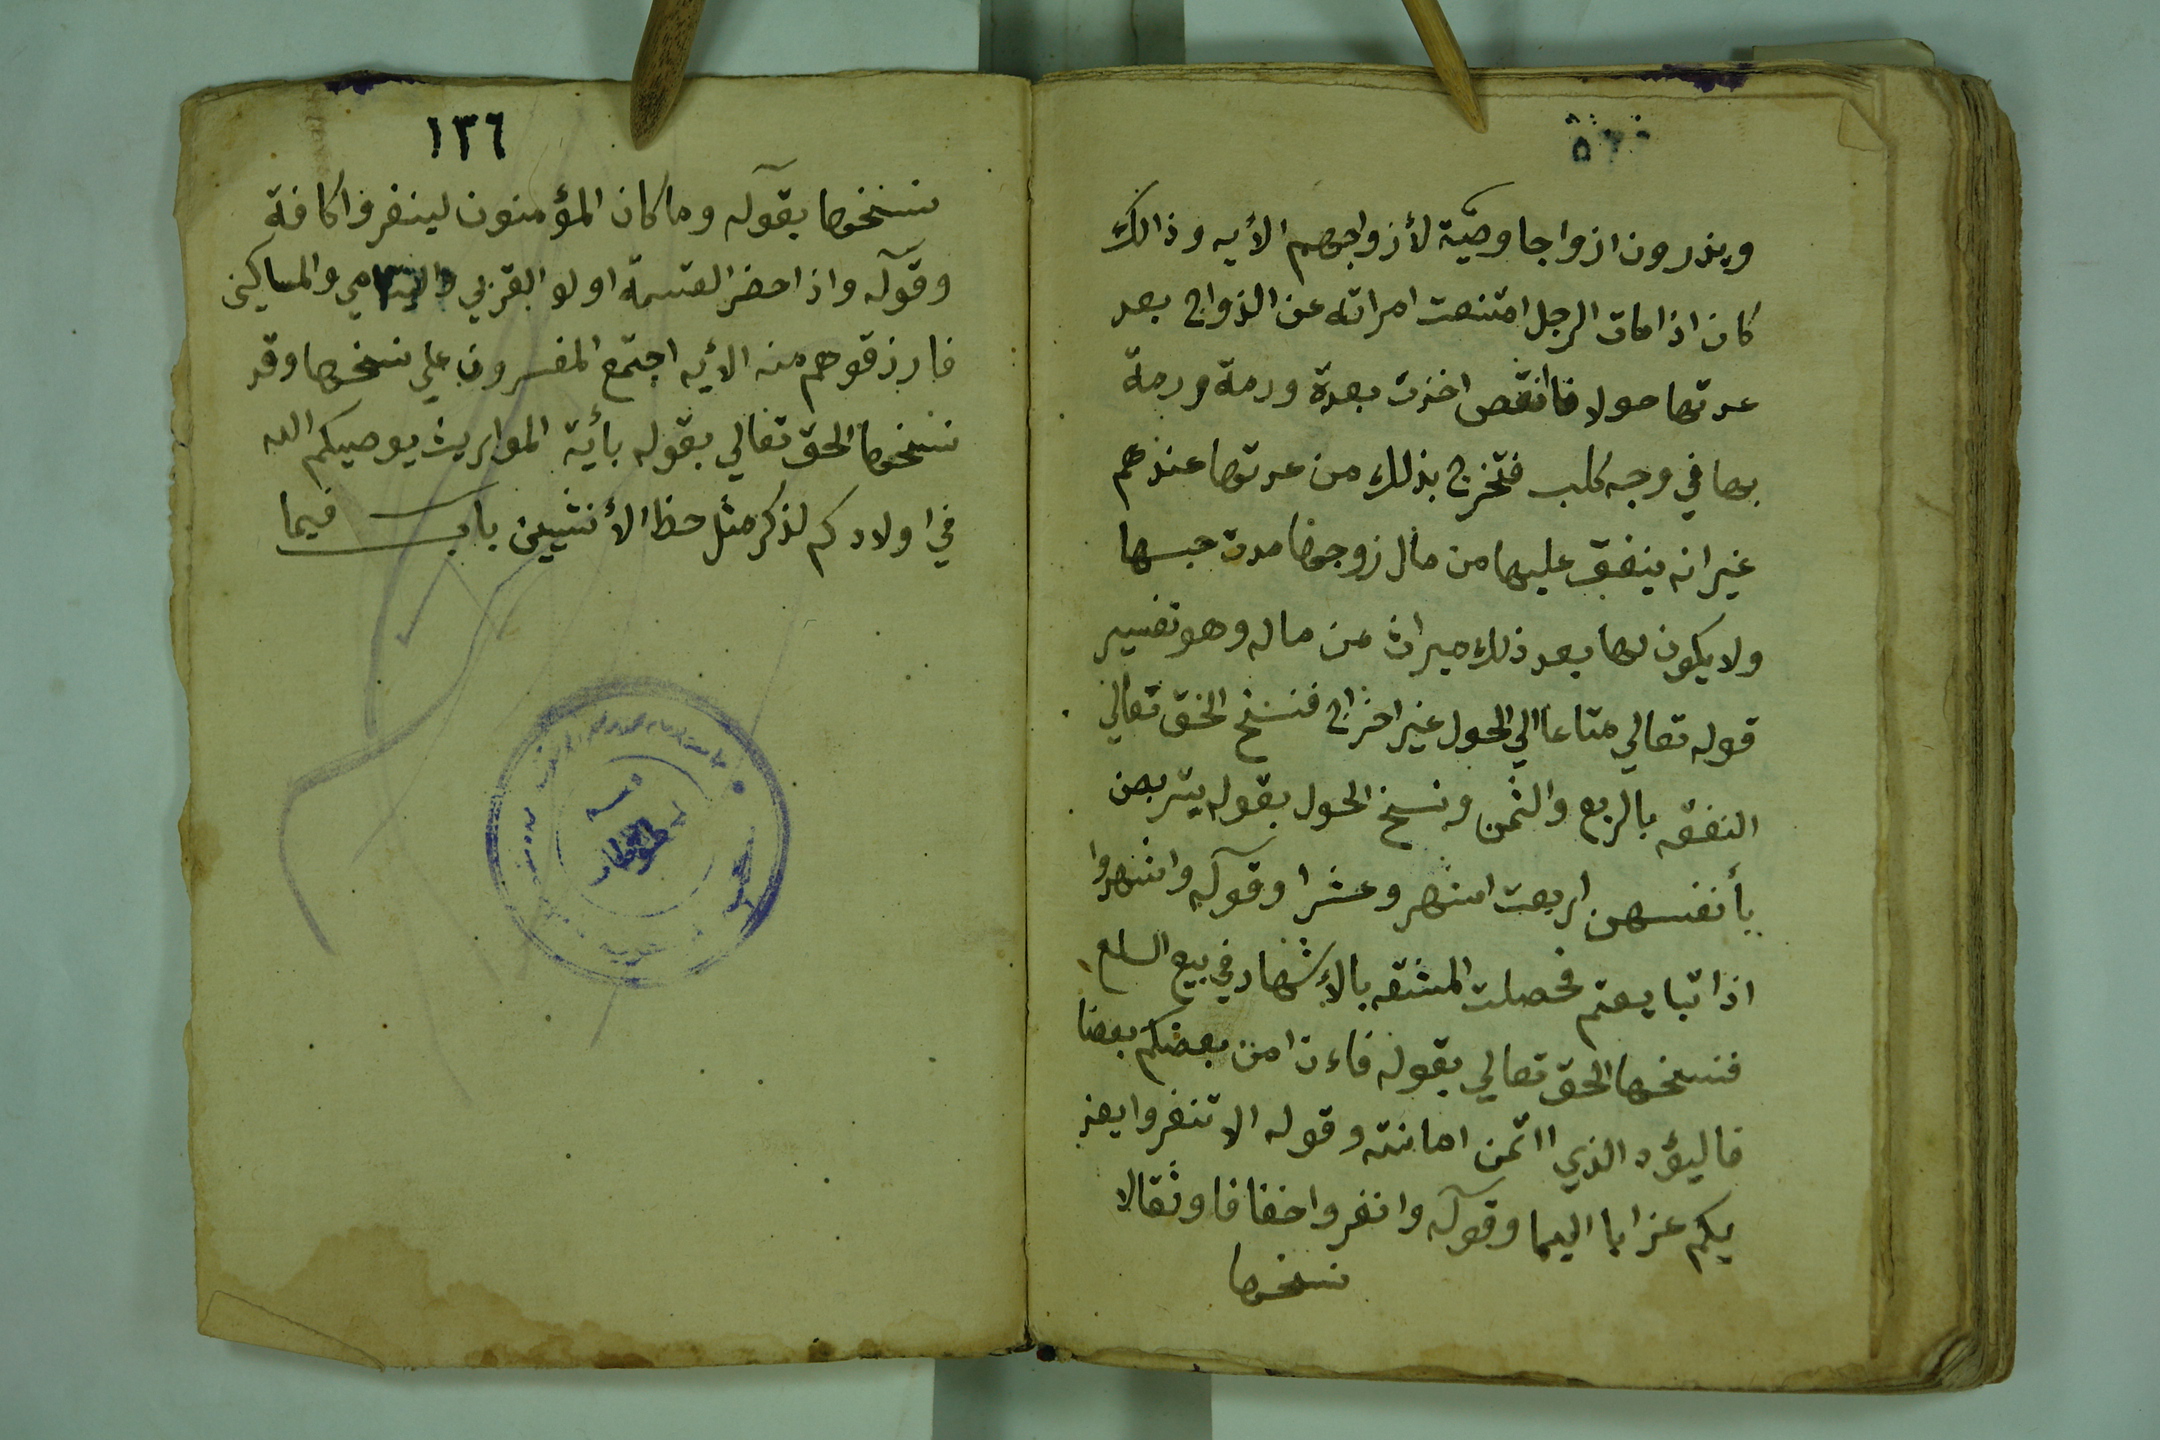 ويذرون ازواجا وصيّة لأزواجهم الأيه وذالك
كان اذا مات الرجل امتنعت امراته عن الزواج بعد
عدتها حولا فاانقص اخذت بعدة ورمة ورمة
بها في وجه كلب فتخرج بذلك من عدتها عندهم
غير انه ينفق عليها من مال زوجها مدة حبسها
ولا يكون لها بعد ذلك ميراث من ماله وهو تفسير
قوله تعالي متاعا الي الحول غير اخراج فنسخ الحق تعالي
النفقه بالربع والثمن ونسخ الحول بقوله يتربصن
بأنفسهن اربعت اشهر وعشرا وقوله واشهدوا
اذا تبايعتم فحصلت المشقه بالأشهاد في بيع السلع
فنسخها الحق تعالي بقوله فاءن امن بعضكم بعضا
فاليؤد الذي اأتمن امانته وقوله الا تنفروا يعذ
بكم عذابا اليما وقوله وانفروا خفافا وثقالا
نسخها
١٣٦
نسخها بقوله وما كان المؤمنون لينفروا كافة
وقوله واذا حضر القسمة اولو القربي واليتامي والمساكين
فارزقوهم منه الأيه اجتمع المفسرون علي نسخها وقد
نسخها الحق تعالي بقوله بأية المواريث يوصيكم الله
في اولادكم لذكر مثل حظ الأنثيين باب فيما